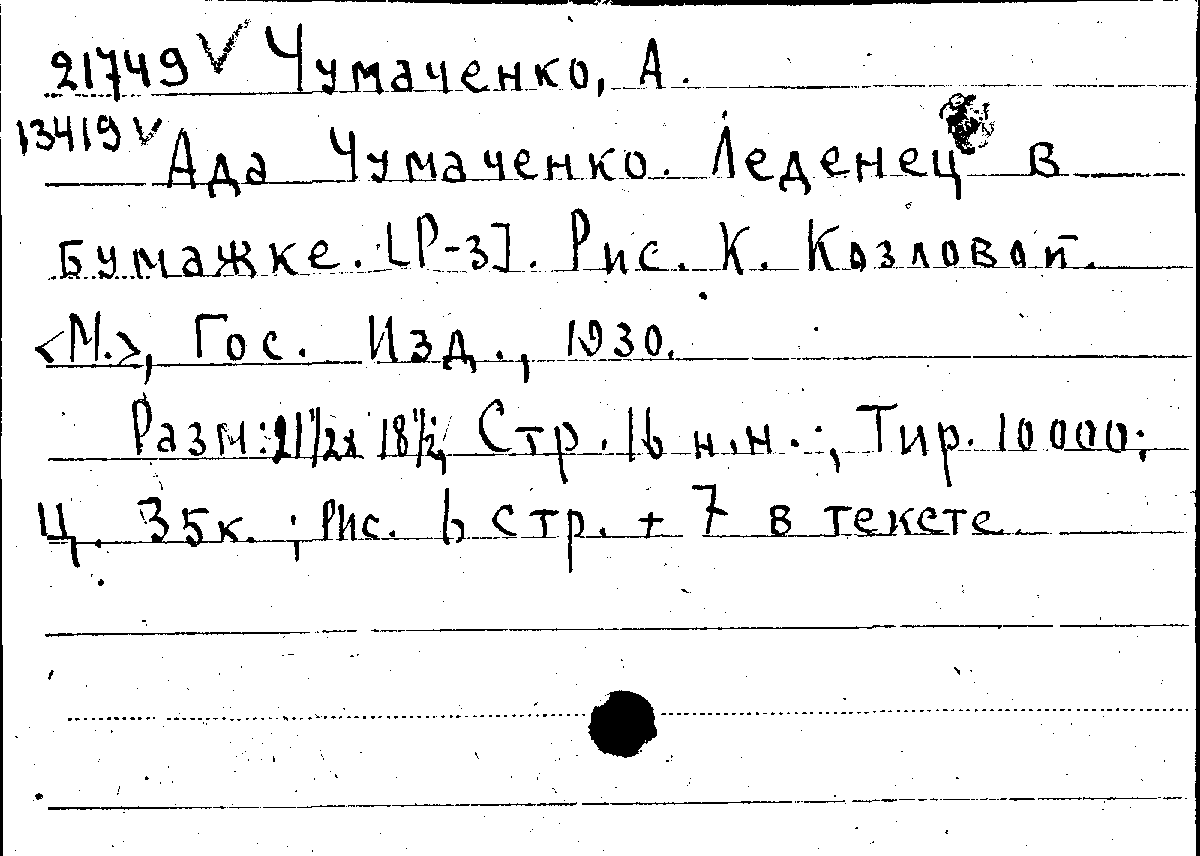 21749 V Чумаченко, А.
13419 V Ада Чумаченко. Леденец в
бумажке. [Р-з]. Рис. К. Козловой.
<М.>, Гос. Изд., 1930.
Разм: 21 1/2 x 18 1/2; Стр. 16 н.н.; Тир. 10000;
Ц. 35 к.; Рис. 6 стр. + 7 в тексте